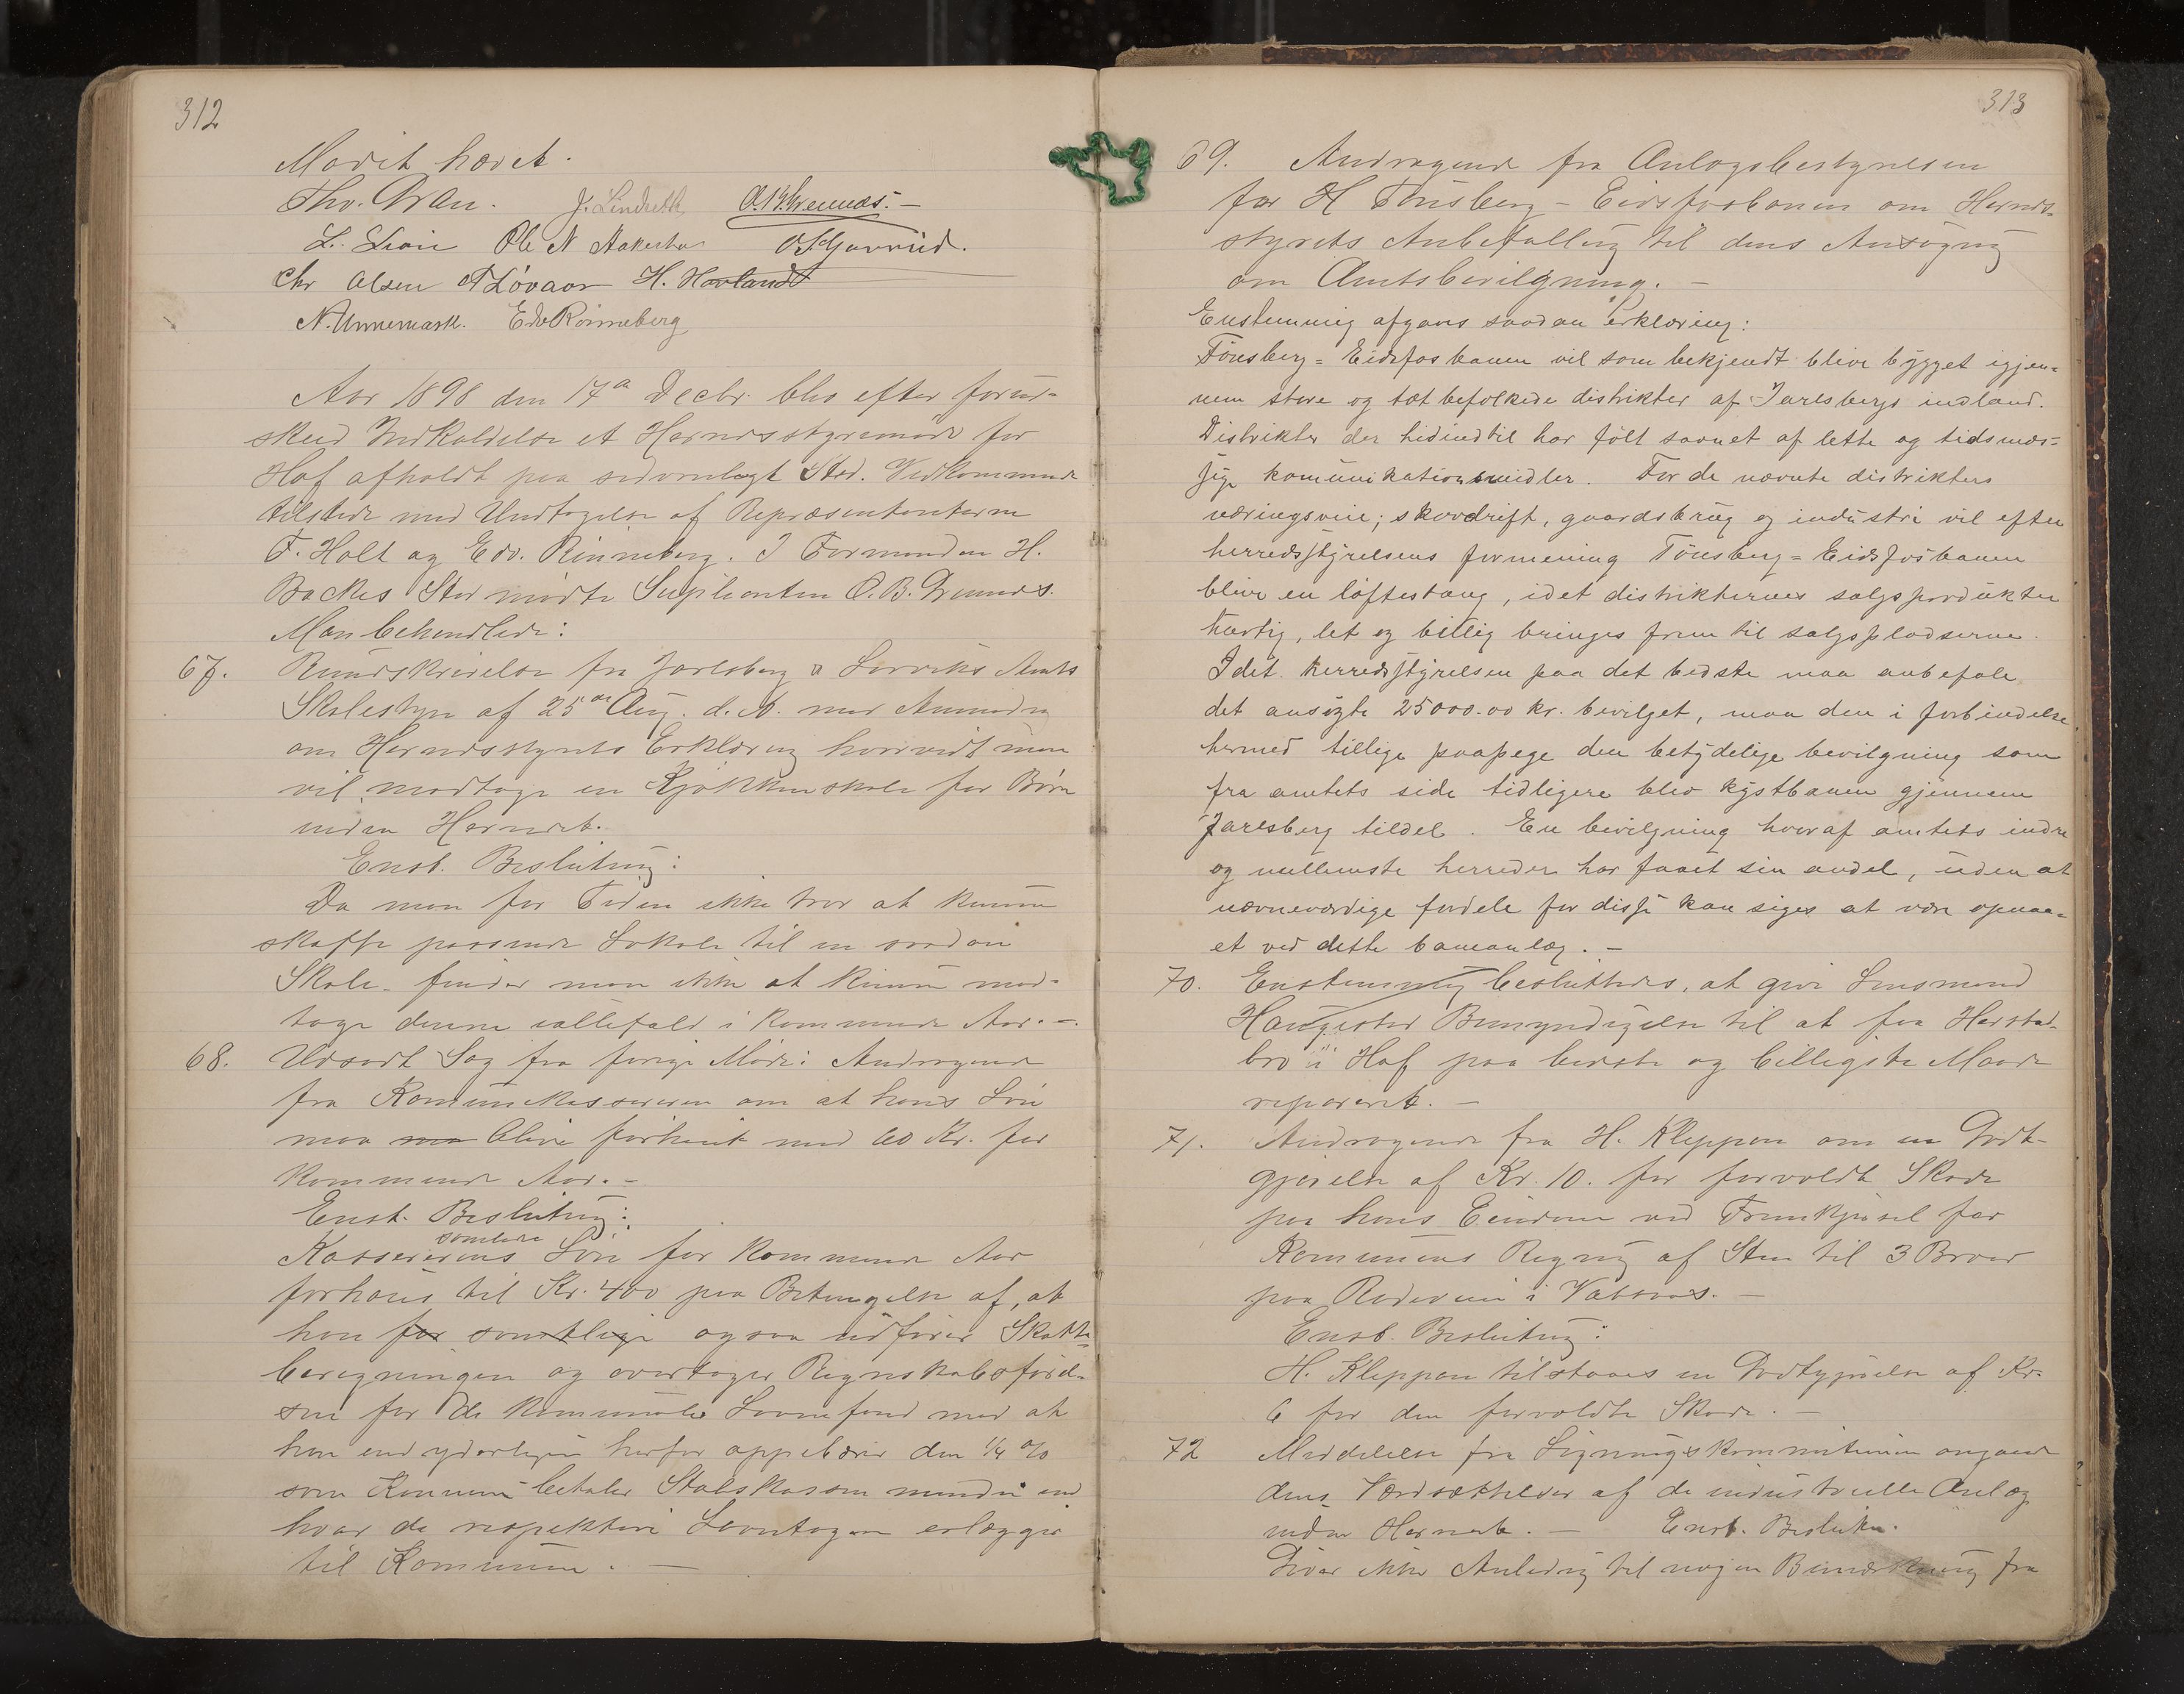 312
Mödet hævet.
Thv. Gran. J. Lindseth O.B. Grennæs.-
L. Lian Ole N Aakerholt O Gjavnrud.
Chr Olsen A Løvaas H. Havland
N. Unnemark. Edv Rönneberg
Aar 1898 den 17de Decbr. blev efter forud-
skeed Indkaldelse et Herredsstyremöde for
Hof afholdt paa sedvanlagt Sted. Vedkommende
tilstede med Undtagelse af Repræsentanterne
F. Holt og Edv. Rönneberg. I Formanden H.
Backes Sted mödte Suplianten O.B. Grennæs.
Man behandlede:
67. Rundskrivelse fra Jarlsberg & Larviks Amts
Skolestyre af 25de Aug. d. A. med Anmodn
om Herredsstyrets Erklæring hvorvidt man
vil modtage en Kjökkenskole for Börn
inden Herredet.
Enst. Beslutning:
Da man for Tiden ikke tror at kunne
skaffe passende Lokale til en saadan
Skole finder man ikke at kunne mod-
tage denne iallefald i kommende Aar.-
68. Udsadt Sag fra forrige Möde: Andragende
fra Kommunekassereren om at hans Lön
maa blive forhöiet med 60 Kr. for
kommende Aar.-
Enst. Beslutning:
samlede
Kassererens Lön for kommende Aar
forhöies til Kr. 400 paa Betingelse af, at
han for samtlige ogsaa udförer Skatte-
beregningen og overtager Regnskabsförel-
sen for de kommunale Laanefond med at
han end yderligere herfor oppebærer den 1/4 %
som Kommunen betaler Statskassen mindre end
hvad de respektive Laantagere erlægger
til Kommunen. —
313
69. Andragende fra Anlægsbestyrelsen
for H Tönsberg - Eidsfosbanen om Herreds-
styrets Anbefalling til dens Ansögning
om Amtsbevilgning. -
Enstemmig afgaves saadan erklæring:
Tönsberg = Eidsfosbanen vil som bekjendt blive bygget igjen=
nem store og tæt befolkede distrikter af Jarlsbergs indland.
Distrikter der hidindtil har fölt savnet af lette og tidsmæs=
sige komunikationsmidler. For de nævnte distrikters
næringsveie; skovdrift, gaardsbrug og industri vil efter
herredsstyrelsens formening Tönsberg = Eidsfosbanen
blive en löftestang, idet distrikternes salgsprodukter
hurtig, let og billig bringes frem til salgspladserne.
Idet herredsstyrelsen paa det bedste maa anbefale
det ansögte 25000.00 kr. bevilget, maa den i forbindelse
hermed tillige paapege den betydelige bevilgning som
fra amtets side tidligere blev kystbanen gjennem
Jarlsberg tildel. En bevilgning hvoraf amtets indre
og mellemste herreder har faaet sin andel, uden at
nævneværdige fordele for disse kan siges at være opnaa=
et ved dette baneanlæg.-
70. Enstemmig besluttedes, at give Lensmand
Haugestad Bemyndigelse til at faa Herstad-
bro i Hof paa bedste og billigste Maade
reparert. -
71. Andragende fra H. Kleppan om en Godt-
gjörelse af Kr. 10. for forvoldt Skade
paa hans Eiendom ved Fremkjörsel for
Kommunens Regning af Sten til 3 Broer
paa Rodeveien i Vassaas. -
Enst. Beslutning:
H. Kleppan tilstaaes en Godtgjörelse af Kr.
6 for den forvoldte Skade. -
72 Meddelelse fra Ligningskommissionen angaaende
dens Værdsættelser af de industrielle Anlæg
inden Herredet. — Enst. Beslutn.
Giver ikke Anledning til nogen Bemærkning fra